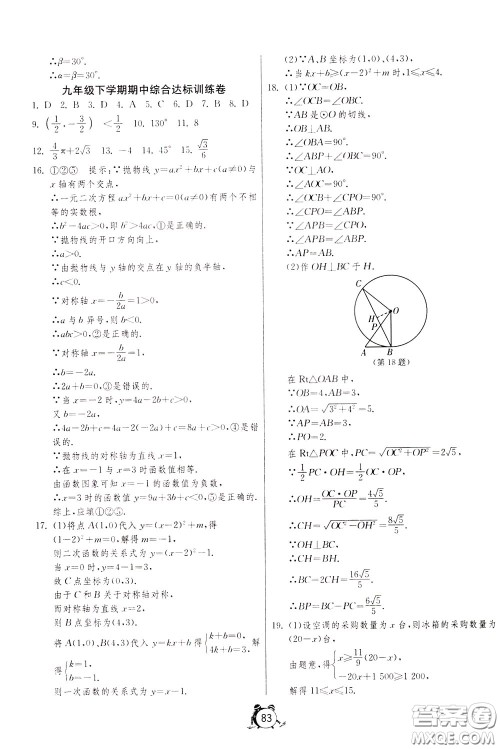 ∴β=30°.
∴α=β=30°.
九年级下学期期中综合达标训练卷
1. D 2. B 3. D 4. A 5. C 6. D 7. B 8. D
9. (1/2, -3/2) <1/2 10. 130° 11. 8
12. 4/3π+2√3 13. -4 14. 45° 15. √3/6
16. ①②⑤ 提示：∵抛物线 y=ax²+bx+c(a≠0)与
x 轴有两个交点，
∴一元二次方程 ax²+bx+c=0(a≠0)有两个不相
等的实数根，
∴b²-4ac>0，即 b²>4ac，①是正确的.
∵抛物线的开口方向向上，
∴a>0.
∵由抛物线与 y 轴的交点在 y 轴的负半轴，
∴c<0.
∵对称轴 x=-b/2a=1>0，
∴a 与 b 异号，则 b<0.
∴abc>0，②是正确的.
∵对称轴 x=-b/2a=1，
∴b=-2a.
∴2a+b=0，③是错误的.
∵当 x=-2 时，y=4a-2b+c>0，
又 b=-2a，
∴4a-2b+c=4a-2(-2a)+c=8a+c>0，
∴④是错误的.
∵抛物线的对称轴为直线 x=1，
∴x=-1 与 x=3 时函数值相等.
由函数图象可知 x=-1 的函数值为负数，
∴x=3 时的函数值 y=9a+3b+c<0，⑤是正确的.
综上，应填①②⑤.
17. (1)将点 A(1,0)代入 y=(x-2)²+m，得
(1-2)²+m=0，解得 m=-1.
则二次函数的关系式为 y=(x-2)²-1.
当 x=0 时，y=4-1=3，
故 C 点坐标为(0,3).
由于 C 和 B 关于对称轴对称，
而对称轴为直线 x=2，
则 B 点坐标为(4,3).
将 A(1,0)、B(4,3)代入 y=kx+b 得{k+b=0, 4k+b=3, 解
得{k=1, b=-1.
则一次函数的关系式为 y=x-1.
(2)∵A、B 坐标为(1,0)，(4,3)，
∴当 kx+b≥(x-2)²+m 时，1≤x≤4.
18. (1)∵OC=OB，
∴∠OCB=∠OBC.
∵AB是⊙O的切线，
∴OB⊥AB.
∴∠OBA=90°.
∴∠ABP+∠OBC=90°.
∵OC⊥AO，
∴∠AOC=90°.
∴∠OCB+∠CPO=90°.
∴∠CPO=∠ABP.
∵∠CPO=∠APB，
∴∠APB=∠ABP.
∴AP=AB.
(2)作 OH⊥BC 于 H.
C
O
H
P
A
B
(第 18 题)
在 Rt△OAB 中，
∵OB=4，AB=3，
∴OA=√(3²+4²)=5.
∵AP=AB=3，
∴PO=2.
在 Rt△POC 中，PC=√(OC²+OP²)=2√5，
∵1/2PC·OH=1/2OC·OP，
∴OH=OC·OP/PC=4√5/5.
∴CH=√(OC²-OH²)=8√5/5.
∵OH⊥BC，
∴CH=BH.
∴BC=2CH=16√5/5.
∴BP=BC-PC=6√5/5.
19. (1)设空调的采购数量为 x 台，则冰箱的采购数量为
(20-x)台，
由题意，得{x≥11/9(20-x), -20x+1500≥1200,
解得 11≤x≤15.
83